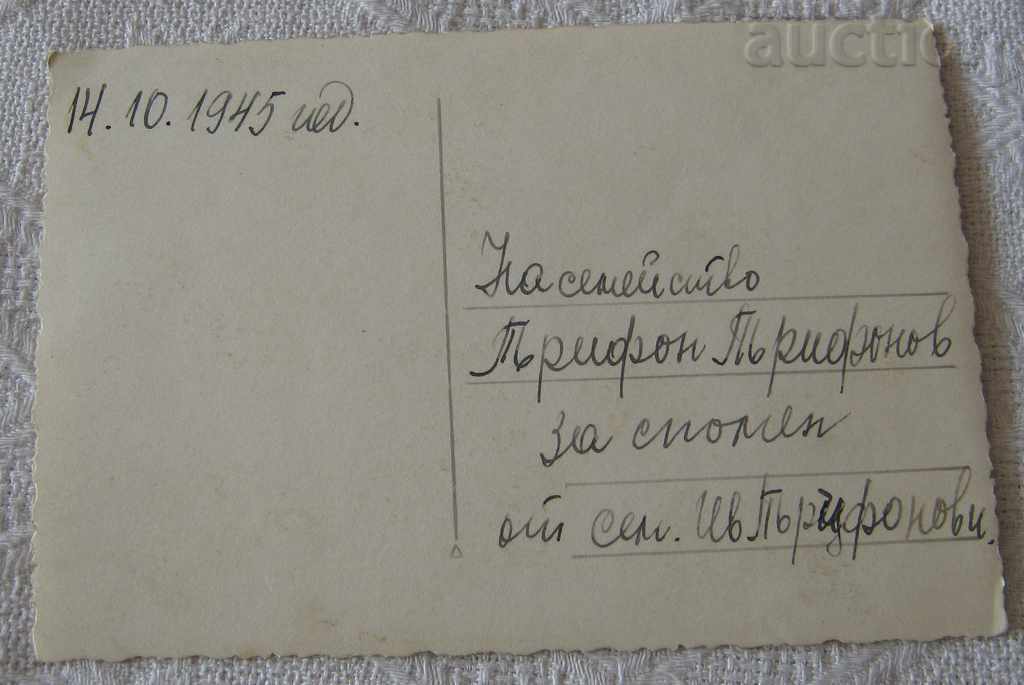 auctio
14.10.1945 год.
На семейство
Трифон Трифонов
За спомен
от сем. Ив Трифонови.